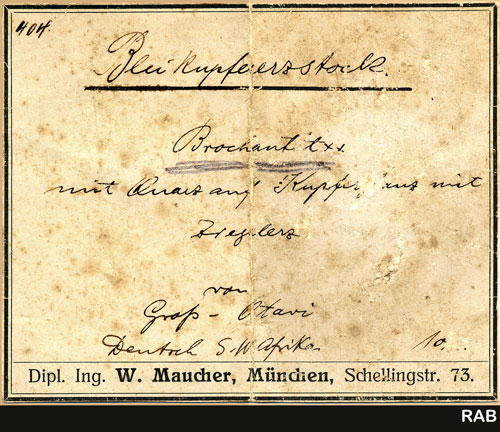 404.
Bleikupfererzstock.
Brochantit xx
mit Quarz auf Kupferglanz mit
Ziegelerz
von
Groß - Otavi
Deutsch S. W. Afrika
10.
Dipl. Ing. W. Maucher, München, Schellingstr. 73.
RAB